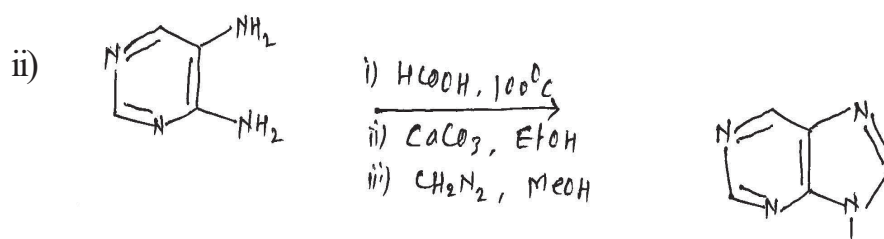 ii)
N
NH2
N
NH2
i) HCOOH, 100°C
ii) CaCO3, EtOH
iii) CH2N2, MeOH
N
N
N
N